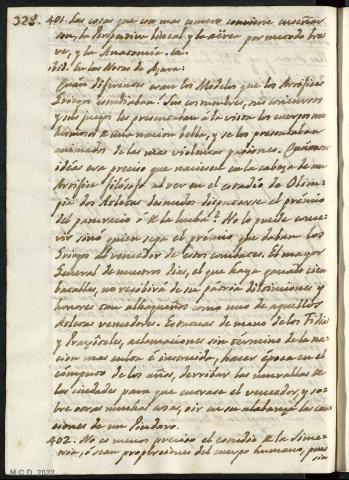 322. 401. Las cosas que con mas esmero conviene enseñar
son, la Perspectiva lineal, y la aërea por metodo bre
ve, y la Anatomía &a.
ibid. En las Notas de Azara:
Quán diferentes eran los Modelos que los Artífices
Griegos estudiaban! Sus costumbres, sus exercicios
y sus juegos les presentaban à la vista los cuerpos mas
hermosos de una nacion bella, y se los presentaban
animados de las mas violentas pasiones. Quántas
ideas era preciso que naciesen en la cabeza de un
Artífice filósofo al ver en el estadio de Olim-
pia dos Atletas desnudos disputarse el premio
del pancracio ó de la lucha? No lo puede conce-
vir sinó quien sepa el premio que daban los
Griegos al vencedor de estos combates. El mayor
General de nuestros dias, el que haya ganado cien
batallas, no recibirá de su patria distinciones y
honores tan alhagueños como uno de aquellos
Atletas vencedores. Estatuas de mano de los Fidias
y Praxîteles, aclamaciones sin termino de la na-
cion mas culta é instruida, hacer época en el
cómputo de los años, derribar las murallas de
las ciudades para que entrase el vencedor, y so-
bre otras muchas cosas, oir en su alabanza las can-
ciones de un Pindaro.
402. No es menos preciso el estudio de la Sime-
tria, ó sean proporciones del cuerpo humano, pues
sin
M.C.D. 2022